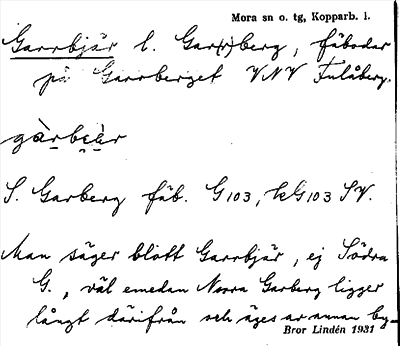 Mora sn o. tg, Kopparb. l.
Garrbjär l. Gar(r)berg, fäbodar
på Garrberget VNV Fulåberg.
gàrbeàr
S. Garberg fäb. G103, kG103 SV.
Man säger blott Garrbjär, ej Södra
G., väl emedan Norra Garberg ligger
långt därifrån och äges av annan by
Bror Lindén 1931